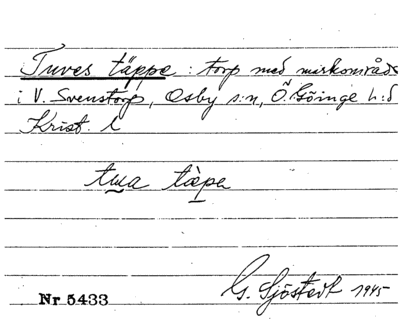 Tuves täppa : torp med markområde
i V. Svenstorp, Osby s:n, Ö. Göinge h:d
Krist. l
tua täpa
G. Sjöstedt 1945
Nr 5433